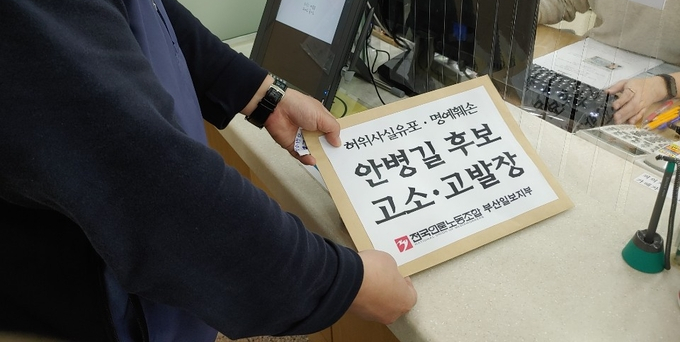 허위사실유포 · 명예훼손
안병길 후보
고소·고발장
전국언론노동조합 부산일보지부